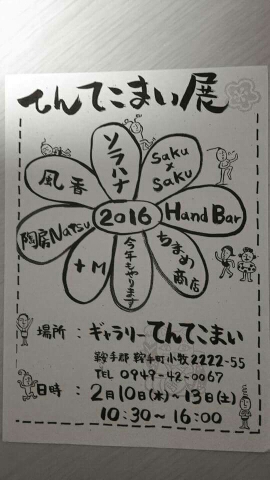 てんてこまい展
ソラハナ
saku × saku
風香
Hand Bar
2016
陶房Natsu
ちまめ商店
+M
今年もやります
場所：ギャラリーてんてこまい
鞍手郡 鞍手町小牧2222-55
TEL 0949-42-0067
日時：2月10日(水)～13日(土)
10:30～16:00